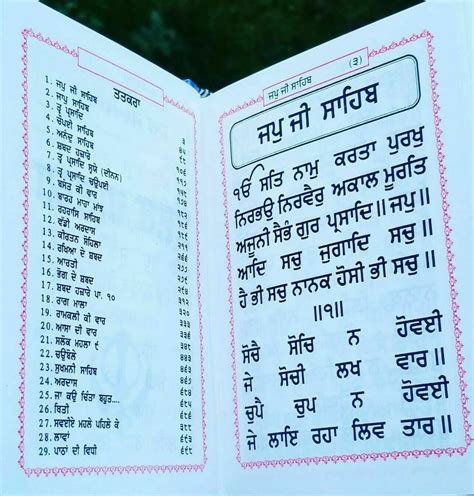 ਤਤਕਰਾ
1. ਜਪੁ ਜੀ ਸਾਹਿਬ
2. ਜਾਪੁ ਸਾਹਿਬ
3. ਤ੍ਵ ਪ੍ਰਸਾਦਿ
4. ਚੌਪਈ ਸਾਹਿਬ
5. ਅਨੰਦੁ ਸਾਹਿਬ
6. ਸ਼ਬਦ ਹਜ਼ਾਰੇ
7. ਤ੍ਵ ਪ੍ਰਸਾਦਿ ਸ੍ਵਯੇ (ਦੀਨਨ)
8. ਤ੍ਵ ਪ੍ਰਸਾਦਿ ਚਉਪਈ
9. ਬਸੰਤ ਕੀ ਵਾਰ
10. ਬਾਰਹ ਮਾਹਾ ਮਾਂਝ
11. ਰਹਰਾਸਿ ਸਾਹਿਬ
12. ਵੱਡੀ ਅਰਦਾਸ
13. ਕੀਰਤਨ ਸੋਹਿਲਾ
14. ਰਖਿਆ ਦੇ ਸ਼ਬਦ
15. ਆਰਤੀ
16. ਭੋਗ ਦੇ ਸ਼ਬਦ
17. ਸ਼ਬਦ ਹਜ਼ਾਰੇ ਪਾ. ੧੦
18. ਰਾਗ ਮਾਲਾ
19. ਰਾਮਕਲੀ ਕੀ ਵਾਰ
20. ਆਸਾ ਦੀ ਵਾਰ
21. ਸਲੋਕ ਮਹਲਾ ੯
22. ਚਉਬੋਲੇ
23. ਸੁਖਮਨੀ ਸਾਹਿਬ
24. ਅਰਦਾਸ
25. ਜਾ ਕਉ ਚਿੰਤਾ ਬਹੁਤ....
26. ਥਿਤੀ
27. ਸਵਈਏ ਮਹਲੇ ਪਹਿਲੇ ਕੇ
28. ਲਾਵਾਂ
29. ਪਾਠਾਂ ਦੀ ਵਿਧੀ
ਜਪੁ ਜੀ ਸਾਹਿਬ (੩)
ਜਪੁ ਜੀ ਸਾਹਿਬ
ੴ ਸਤਿ ਨਾਮੁ ਕਰਤਾ ਪੁਰਖੁ
ਨਿਰਭਉ ਨਿਰਵੈਰੁ ਅਕਾਲ ਮੂਰਤਿ
ਅਜੂਨੀ ਸੈਭੰ ਗੁਰ ਪ੍ਰਸਾਦਿ॥ ਜਪੁ॥
ਆਦਿ ਸਚੁ ਜੁਗਾਦਿ ਸਚੁ॥
ਹੈ ਭੀ ਸਚੁ ਨਾਨਕ ਹੋਸੀ ਭੀ ਸਚੁ॥
॥੧॥
ਸੋਚੈ ਸੋਚਿ ਨ ਹੋਵਈ
ਜੇ ਸੋਚੀ ਲਖ ਵਾਰ॥
ਚੁਪੈ ਚੁਪ ਨ ਹੋਵਈ
ਜੇ ਲਾਇ ਰਹਾ ਲਿਵ ਤਾਰ॥